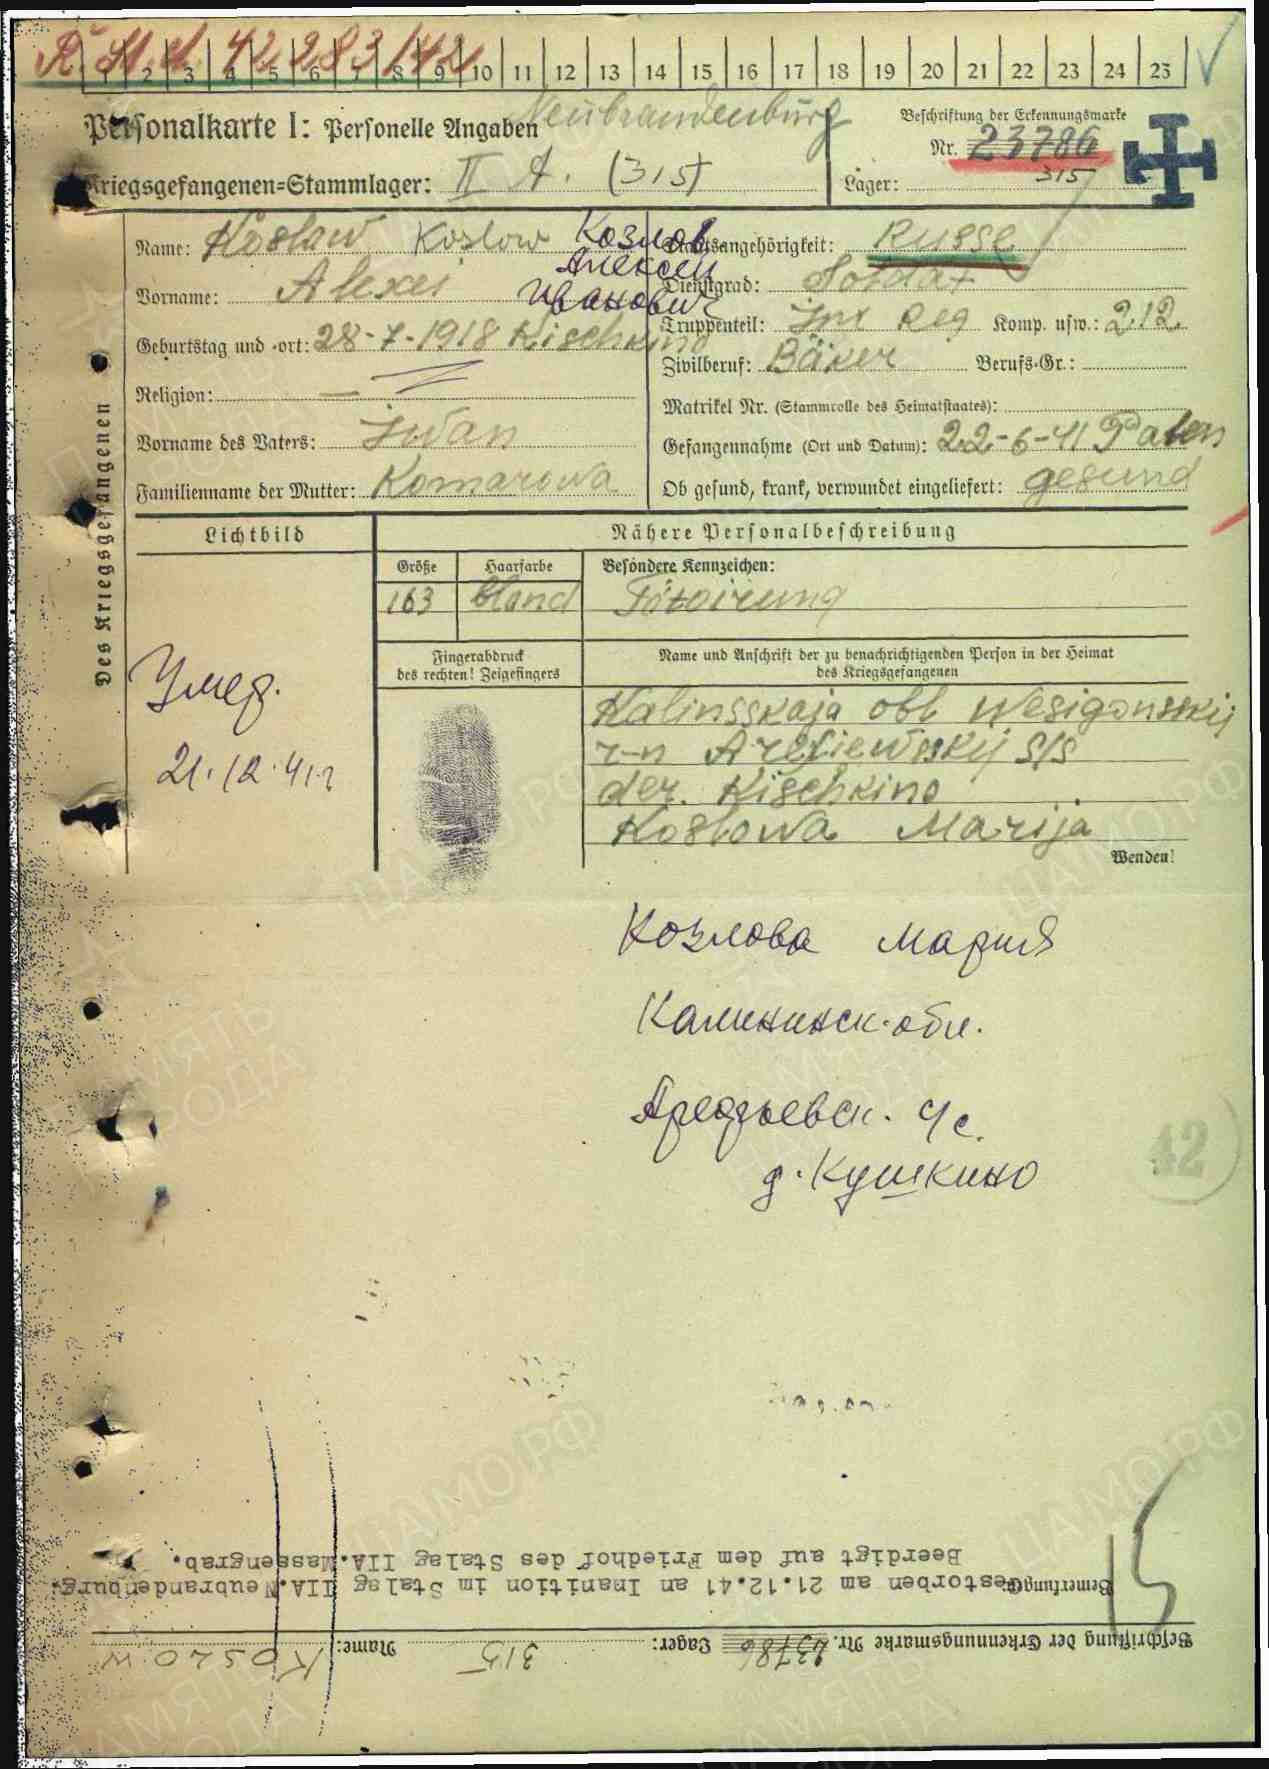 R. St. d. 42 283/42
1 2 3 4 5 6 7 8 9 10 11 12 13 14 15 16 17 18 19 20 21 22 23 24 25
Personalkarte I: Personelle Angaben
Neubrandenburg
Beschriftung der Erkennungsmarke
Nr. 23786
Kriegsgefangenen-Stammlager: II A. (315)
Lager: 315
Des Kriegsgefangenen
Name: Koslaw Koslow Козлов
Алексей
Vorname: Alexei Иванович
Geburtstag und -ort: 28-7-1918 Kischkino
Religion: —
Vorname des Vaters: Iwan
Familienname der Mutter: Komarowa
Staatsangehörigkeit: Russe
Dienstgrad: Soldat
Truppenteil: Inf Reg Komp. usw.: 212
Zivilberuf: Bäker Berufs-Gr.:
Matrikel Nr. (Stammrolle des Heimatstaates):
Gefangennahme (Ort und Datum): 22-6-41
Ob gesund, krank, verwundet eingeliefert: gesund
Lichtbild
Nähere Personalbeschreibung
Größe Haarfarbe Besondere Kennzeichen:
163 bland
Fingerabdruck
des rechten! Zeigefingers
Name und Anschrift der zu benachrichtigenden Person in der Heimat
des Kriegsgefangenen
Умер.
21.12.41г
Kalinsskaja obl Wesigonsskij
r-n Arefiewsskij S/S
der. Kischkino
Koslowa Marija
Wenden!
Козлова Мария
Калининск. обл.
Арефьевск. с/с.
д. Кушкино
42
15
Beerdigt auf dem Friedhof des Stalag IIA. Massengrab.
Bemerkung: Gestorben am 21.12.41 an Inanition im Stalag IIA. Neubrandenburg.
Beschriftung der Erkennungsmarke Nr. 23786 Lager: 315 Name: KOSLOW